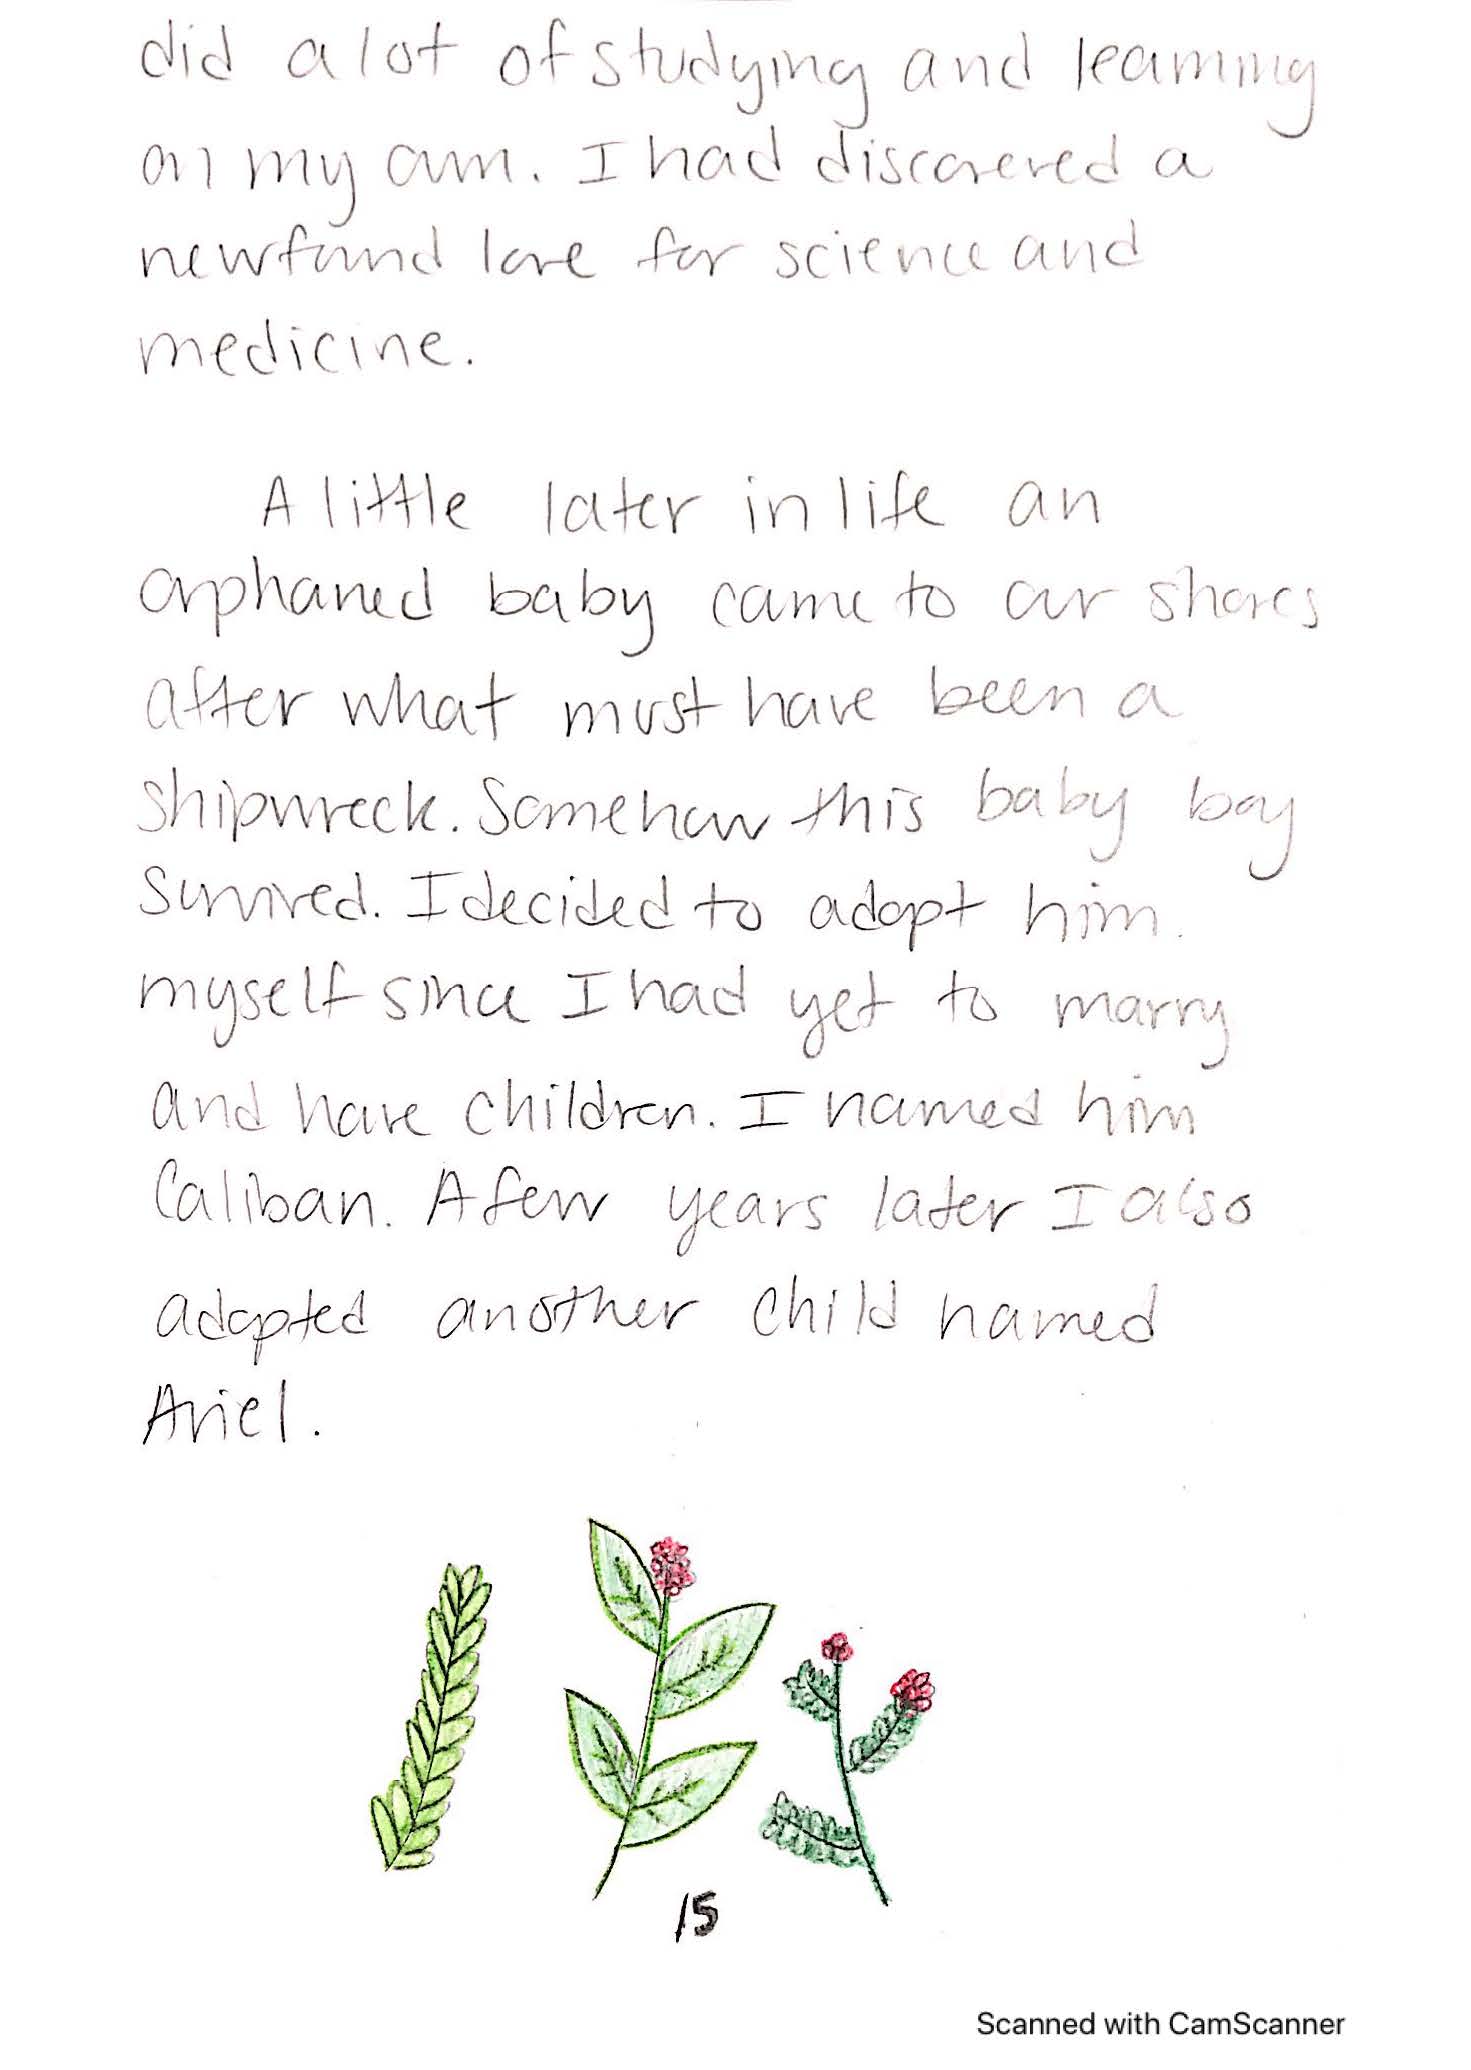 did a lot of studying and learning
on my own. I had discovered a
newfound love for science and
medicine.
A little later in life an
orphaned baby came to our shores
after what must have been a
shipwreck. Somehow this baby boy
survived. I decided to adopt him.
myself since I had yet to marry
and have children. I named him
Caliban. A few years later I also
adopted another child named
Ariel.
15
Scanned with CamScanner